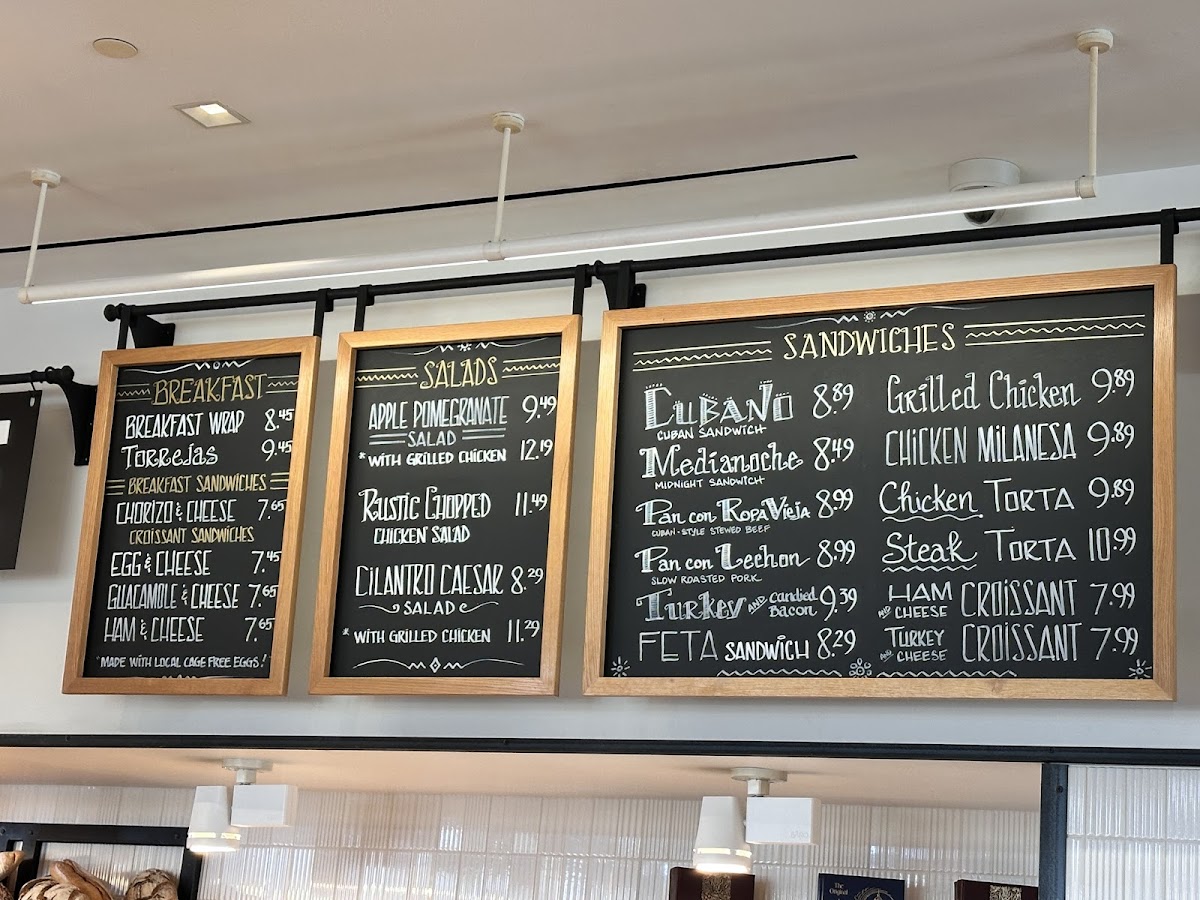 BREAKFAST
BREAKFAST WRAP 8.45
Torrejas 9.45
BREAKFAST SANDWICHES
CHORIZO & CHEESE 7.65
CROISSANT SANDWICHES
EGG & CHEESE 7.45
GUACAMOLE & CHEESE 7.65
HAM & CHEESE 7.65
*MADE WITH LOCAL CAGE FREE EGGS!
SALADS
APPLE POMEGRANATE 9.49
SALAD
* WITH GRILLED CHICKEN 12.19
Rustic Chopped 11.49
CHICKEN SALAD
CILANTRO CAESAR 8.29
SALAD
* WITH GRILLED CHICKEN 11.29
SANDWICHES
CUBANO 8.89
CUBAN SANDWICH
Medianoche 8.49
MIDNIGHT SANDWICH
Pan con Ropa Vieja 8.99
CUBAN-STYLE STEWED BEEF
Pan con Lechon 8.99
SLOW ROASTED PORK
Turkey AND Candied Bacon 9.39
FETA SANDWICH 8.29
Grilled Chicken 9.89
CHICKEN MILANESA 9.89
Chicken TORTA 9.89
Steak TORTA 10.99
HAM AND CHEESE CROISSANT 7.99
TURKEY AND CHEESE CROISSANT 7.99
The
Original